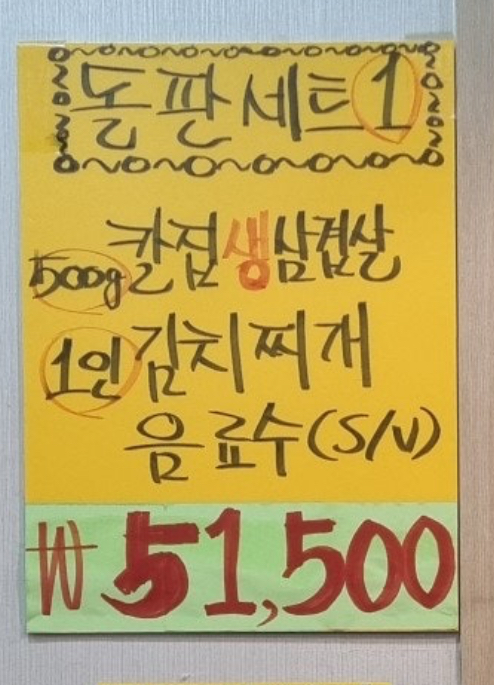 돌판세트1
500g 칼집생삼겹살
1인 김치찌개
음료수(S/V)
₩51,500